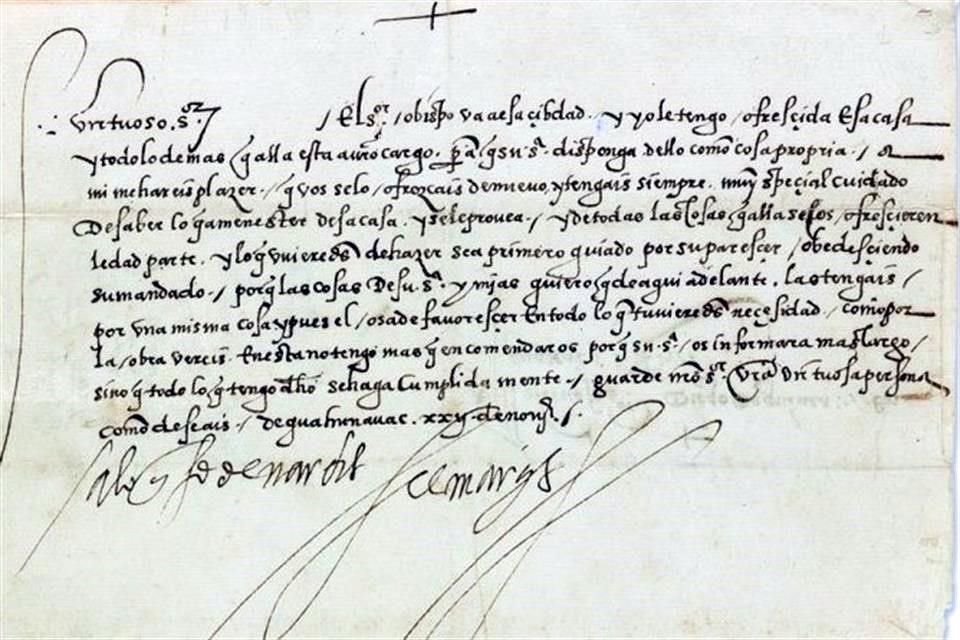 virtuoso. sor
/ El sor / obispo va a esa çibdad. y yo le tengo / ofresçida Esa casa
y todo lo demas q alla esta a vro cargo. pa q su sa. disponga dello como cosa propria. / a
mi me hareis plazer. / q vos se lo / ofrozcais de nuevo, y tengais siempre. muy speçial cuidado
De saber lo q a menester desa casa. y se le provea. / y de todas las cosas q alla se les / ofresçieren
le dad parte. y lo q uvieredes de hazer sea primero guiado por su paresçer, / obedesçiendo
su mandado. / porq las cosas De su sa. y mias quiero q de aqui adelante. las tengais /
por una misma cosa y pues el / os a de favoresçer En todo lo q tuvieredes neçesidad. como por
la / obra vereis. En esta no tengo mas q encomendaros porq su sa. / os informara mas largo /
sino q todo lo q tengo dho se haga Cumplidamente. / guarde nro sor. vra virtuosa persona
como deseais. / de guahunavac. xxij de novie. /.
a lo q
el marqs